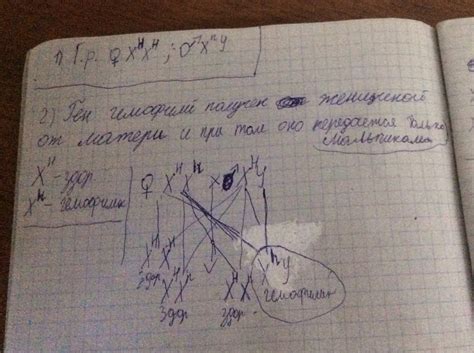 1) Г.р. ♀ XᴴXᴴ ; ♂ XʰY
2) Ген гемофилии получен женщиной
от матери и при том оно передается только
мальчикам
Xᴴ - здор.
Xʰ - гемофилик
♀ XᴴXʰ x ♂ XᴴY
XᴴXᴴ
здор.
XᴴXʰ
здор.
XᴴXʰ
здор.
XʰY
гемофилик